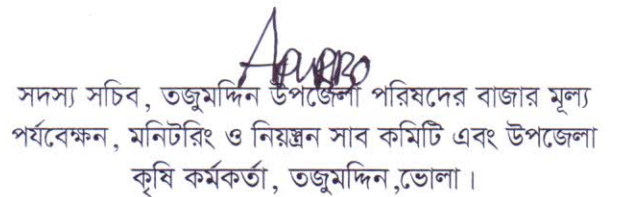 সদস্য সচিব, তজুমদ্দিন উপজেলা পরিষদের বাজার মূল্য
পর্যবেক্ষন, মনিটরিং ও নিয়ন্ত্রন সাব কমিটি এবং উপজেলা
কৃষি কর্মকর্তা, তজুমদ্দিন,ভোলা।